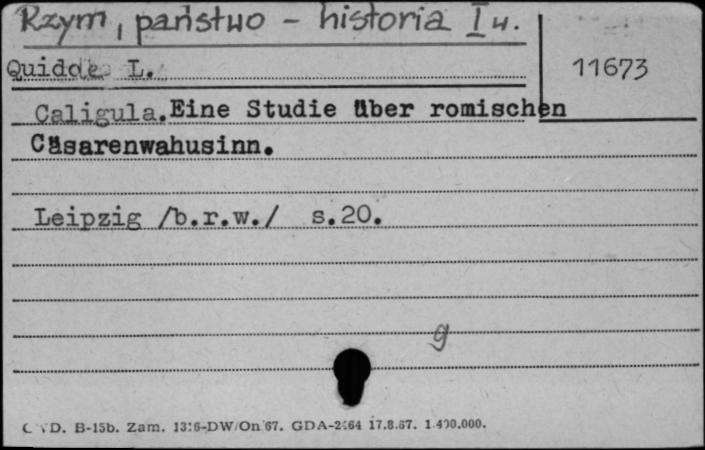 Rzym, państwo - historia I w.
Quidde L.
11673
Caligula.Eine Studie über romischen
Cäsarenwahusinn.
Leipzig /b.r.w./ s.20.
g
B-15b. Zam. 1316-DW/On/67. GDA-2464 17.8.67. 1.400.000.